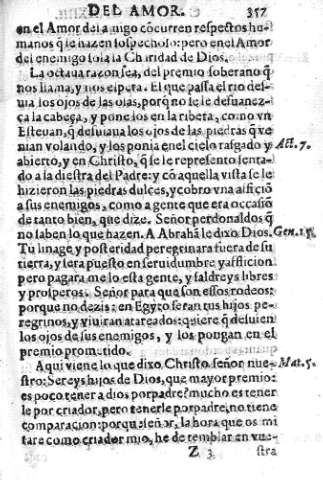 DEL AMOR. 357
en el Amor del amigo cōcurren respectos hu-
manos q̄ le hazen sospechoso: pero en el Amor
del enemigo sola la Charidad de Dios.
La octaua razon sea, del premio soberano q̄
nos llama, y nos espera. El que passa el rio des-
uia los ojos de las olas, porq̄ no se le desuanez-
ça la cabeça, y pone los en la ribera, como vn
Esteuan, q̄ desuiaua los ojos de las piedras q̄ ve
nian volando, y los ponia en el cielo rasgado y Act. 7.
abierto, y en Christo, q̄ se le represento senta-
do a la diestra del Padre: y cō aquella vista se le
hizieron las piedras dulces, y cobro vna afficiō
a sus enemigos, como a gente que era occasiō
de tanto bien, que dize. Señor perdonaldos q̄
no saben lo que hazen. A Abrahā le dixo Dios. Gen. 15.
Tu linage y posteridad peregrinara fuera de su
tierra, y sera puesto en seruidumbre y afflicion
pero pagara me lo esta gente, y saldreys libres
y prosperos. Señor para que son essos rodeos:
porque no dezis: en Egyto seran tus hijos pe-
regrinos, y viuiran atareados: quiere q̄ desuien
los ojos de sus enemigos, y los pongan en el
premio prometido.
Aqui viene lo que dixo Christo señor nue- Mat. 5.
stro: Sereys hijos de Dios, que mayor premio:
es poco tener a dios por padre? mucho es tener
le por criador, pero tenerle por padre, no tiene
comparacion: porque señor, la hora que os mi
rare como criador mio, he de temblar en vue-
Z 3 stra